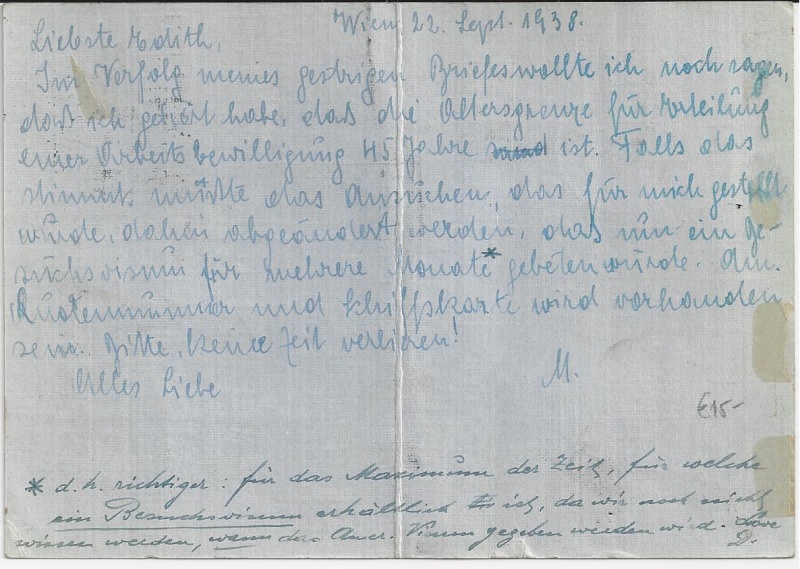 Wien 22. Sept. 1938.
Liebste Edith,
Im Verfolg meines gestrigen Briefes wollte ich noch sagen,
daß ich gehört habe, daß die Altersgrenze für Erteilung
einer Arbeitsbewilligung 45 Jahre ist. Falls das
stimmt, müßte das Ansuchen, das für mich gestellt
wurde, dahin abgeändert werden, daß um ein Be-
suchsvisum für mehrere Monate* gebeten würde. Am.
Quotennummer und Schiffskarte wird vorhanden
sein. Bitte, keine Zeit verlieren!
Alles Liebe M.
€15-
* d.h. richtiger: für das Maximum der Zeit, für welche
ein Besuchsvisum erhältlich ist, da wir noch nicht
wissen werden, wann das Amer. Visum gegeben werden wird. Love
D.